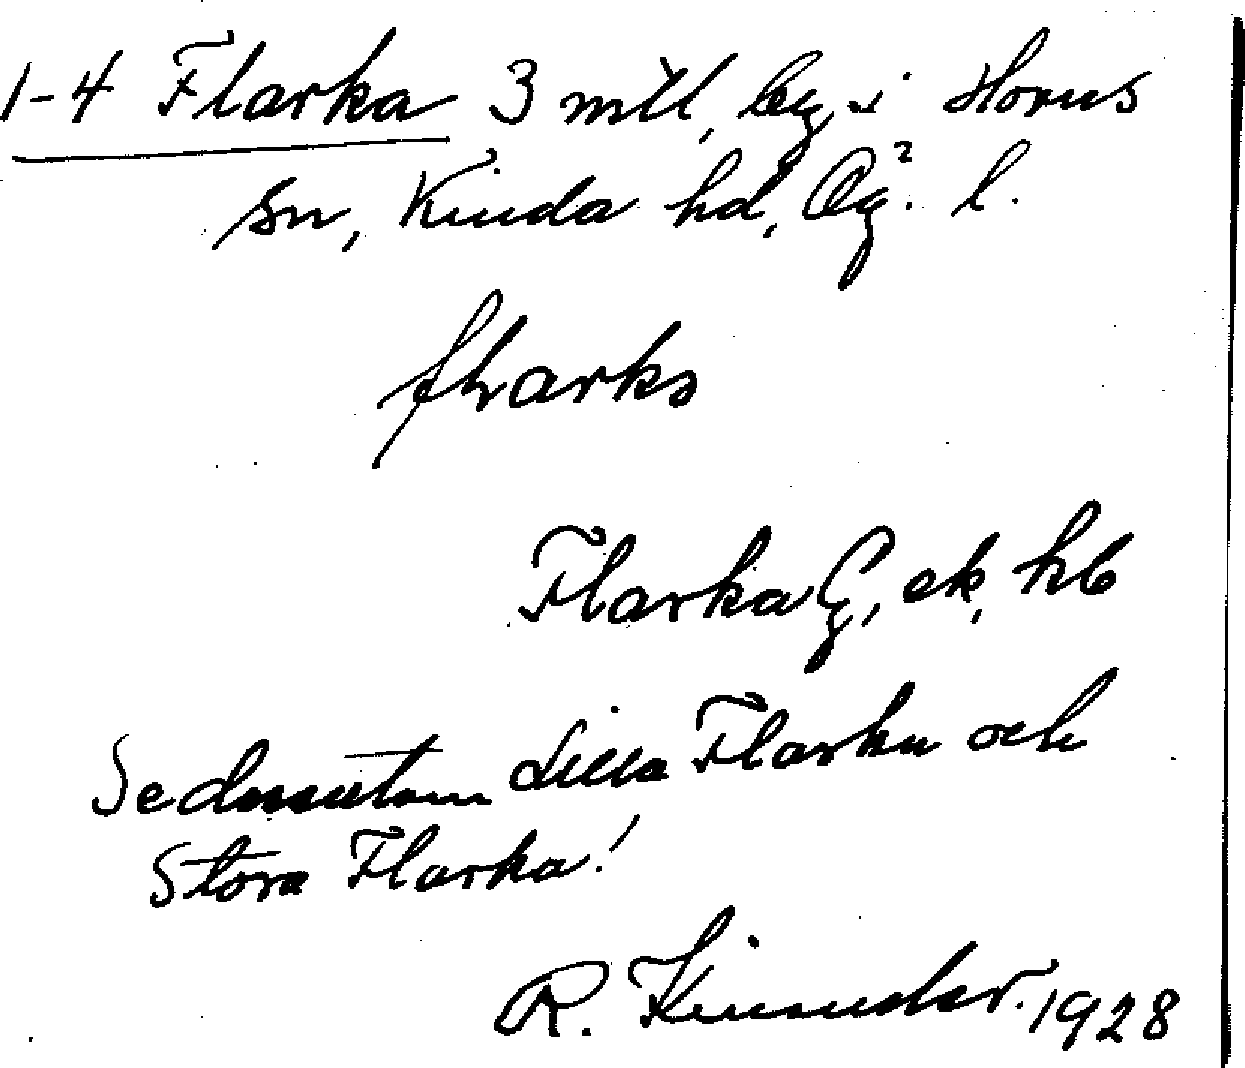 1-4 Flarka 3 mtl, beg. i Horns
sn, Kinda hd, Ög². l.
flarka
Flarka G, ek, kb
Se dessutom Lilla Flarka och
Stora Flarka!
R. 1928